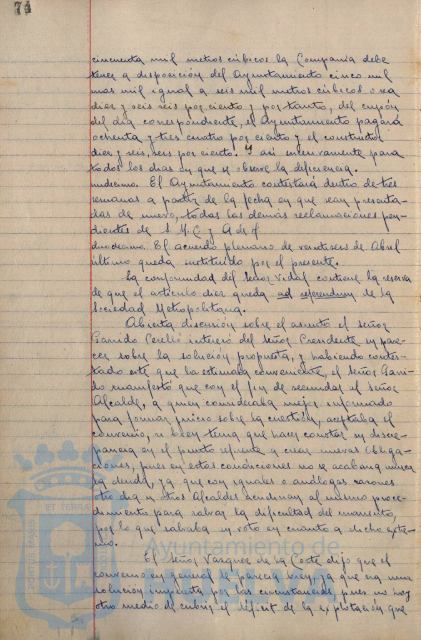 74
cincuenta mil metros cúbicos la Compañia debe
tener a disposición del Ayuntamiento cinco mil
mas mil igual a seis mil metros cúbicos o sea
diez y seis seis por ciento y por tanto, del cupón
del día correspondiente, el Ayuntamiento pagará
ochenta y tres cuatro por ciento y el constructor
diez y seis, seis por ciento. Y asi sucesivamente para
todos los dias en que se observe la deficiencia.
undecimo. El Ayuntamiento contestará dentro de tres
semanas a partir de la fecha en que sean presenta-
das de nuevo, todas las demás reclamaciones pen-
dientes de S. M. C. y A de
duodecimo. El acuerdo plenario de veintiseis de Abril
último queda sustituido por el presente.
La conformidad del Señor Vidal contiene la reserva
de que el artículo diez queda ad referendum de la
Sociedad Metropolitana.
Abierta discusión sobre el asunto el señor
Garrido Perelló interesó del Señor Presidente su pare-
cer sobre la solución propuesta, y habiendo contes-
tado este que la estimaba conveniente, el Señor Garri-
do manifestó que con el fin de secundar al Señor
Alcalde, a quien consideraba mejor informado
para formar juicio sobre la cuestión, aceptaba el
convenio, si bien tenia que hacer constar su discre-
pancia en el punto referente a crear nuevas obliga-
ciones, pues en estas condiciones no se acabará nunca
la deuda, ya que con iguales o análogas razones
otro dia u otros Alcaldes acudirian al mismo proce-
dimiento para salvar la dificultad del momento,
por lo que salvaba su voto en cuanto a dicho extre-
mo.
El Señor Vazquez de la Corte dijo que el
convenio en general le parecia bien, ya que era una
solución impuesta por las circunstancias, pues no hay
otro medio de cubrir el déficit de la explotación que
Ayuntamiento de